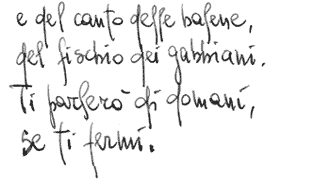 e del canto delle balene,
del fischio dei gabbiani.
Ti parlerò di domani,
se ti fermi.